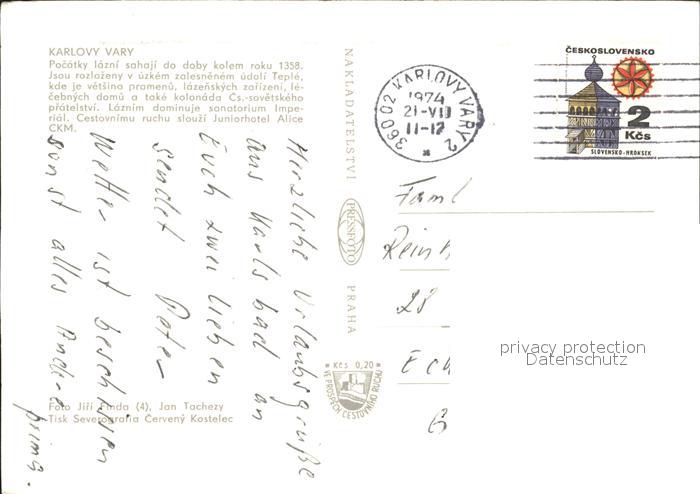 KARLOVY VARY
Počátky lázní sahají do doby kolem roku 1358.
Jsou rozloženy v úzkém zalesněném údolí Teplé,
kde je většina pramenů, lázeňských zařízení, lé-
čebných domů a také kolonáda Čs.-sovětského
přátelství. Lázním dominuje sanatorium Impe-
riál. Cestovnímu ruchu slouží Juniorhotel Alice
CKM.
Herzliche Urlaubsgrüße
aus Karlsbad an
Euch zwei lieben
sendet Peter
Wetter ist beschissen
sonst alles Andre
prima.
Foto Jiří Finda (4), Jan Tachezy
Tisk Severografia Červený Kostelec
NAKLADATELSTVÍ
PRESSFOTO
PRAHA
Kčs 0,20
VE PROSPĚCH CESTOVNÍHO RUCHU
36002 KARLOVY VARY 2
1974
21-VII
11-12
ČESKOSLOVENSKO
2
Kčs
SLOVENSKO-HRONSEK
Faml
Rein
28
Ech
G
privacy protection
Datenschutz